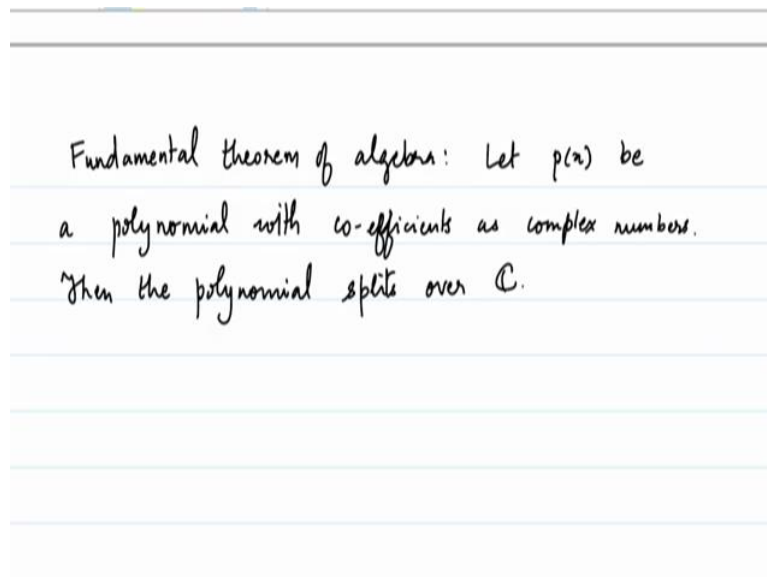 Fundamental theorem of algebra: Let p(x) be
a polynomial with co-efficients as complex numbers.
Then the polynomial splits over ℂ.